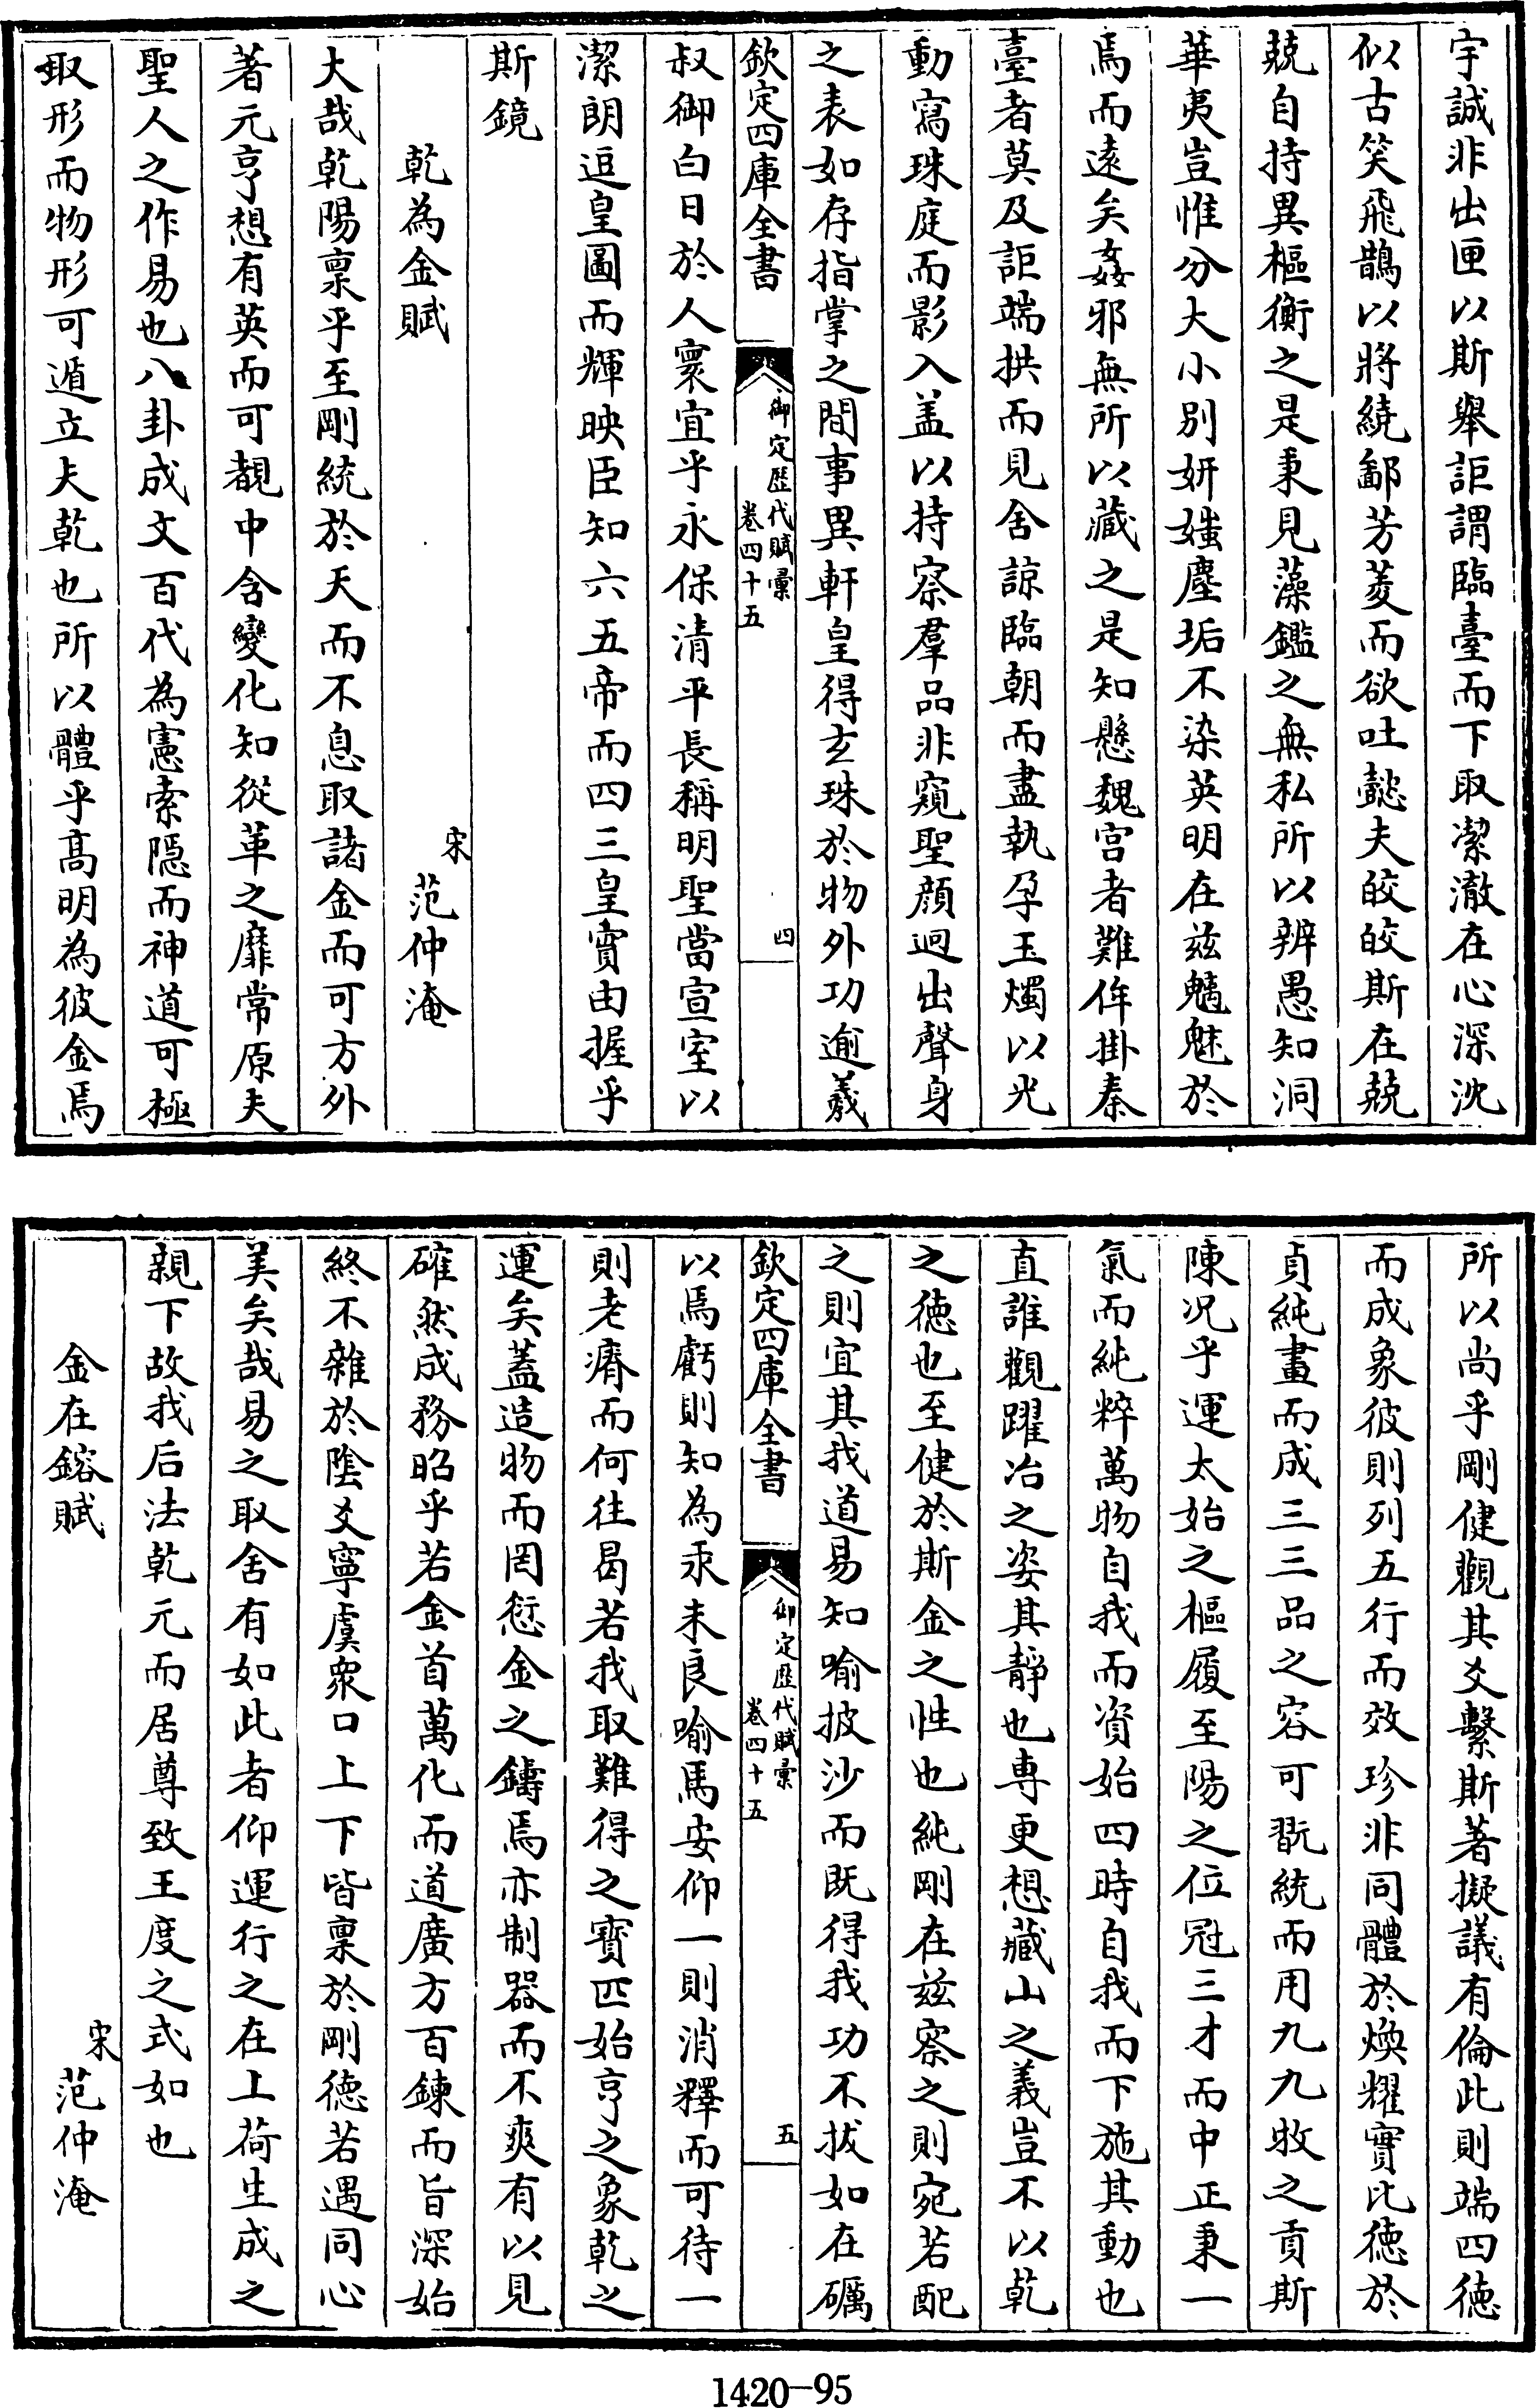 宇誠非出匣以斯舉詎謂臨臺而下取潔澈在心深沈
似古笑飛鵲以將繞鄙芳菱而欲吐懿夫皎皎斯在兢
兢自持異樞衡之是秉見藻鑑之無私所以辨愚知洞
華夷豈惟分大小別妍媸塵垢不染英明在兹魑魅於
焉而遠矣姦邪無所以藏之是知懸魏宫者難侔掛秦
臺者莫及詎端拱而見舍諒臨朝而盡執孕玉燭以光
動寫珠庭而影入盖以持察羣品非窺聖顔迥出聲身
之表如存指掌之間事異軒皇得玄珠於物外功逾羲
欽定四庫全書
御定歴代賦彙
卷四十五
四
叔御白日於人寰宜乎永保清平長稱明聖當宣室以
潔朗逗皇圖而輝映臣知六五帝而四三皇實由握乎
斯鏡
乾為金賦
宋
范仲淹
大哉乾陽禀乎至剛統於天而不息取諸金而可方外
著元亨想有英而可覩中含變化知從革之靡常原夫
聖人之作易也八卦成文百代為憲索隱而神道可極
取形而物形可遁立夫乾也所以體乎高明為彼金焉
所以尚乎剛健觀其爻繫斯著擬議有倫此則端四德
而成象彼則列五行而效珍非同體於煥耀實比德於
貞純畫而成三三品之容可翫統而用九九牧之貢斯
陳况乎運太始之樞履至陽之位冠三才而中正秉一
氣而純粹萬物自我而資始四時自我而下施其動也
直誰觀躍冶之姿其靜也専更想藏山之義豈不以乾
之德也至健於斯金之性也純剛在兹察之則宛若配
之則宜其我道易知喻披沙而既得我功不拔如在礪
欽定四庫全書
御定歴代賦彙
卷四十五
五
以焉虧則知為汞未良喻馬安仰一則消釋而可待一
則老瘠而何往曷若我取難得之寳匹始亨之象乾之
運矣蓋造物而罔愆金之鑄焉亦制器而不爽有以見
確然成務昭乎若金首萬化而道廣方百鍊而旨深始
終不雜於隂爻寧虞衆口上下皆禀於剛德若遇同心
美矣哉易之取舍有如此者仰運行之在上荷生成之
親下故我后法乾元而居尊致王度之式如也
金在鎔賦
宋
范仲淹
1420-95